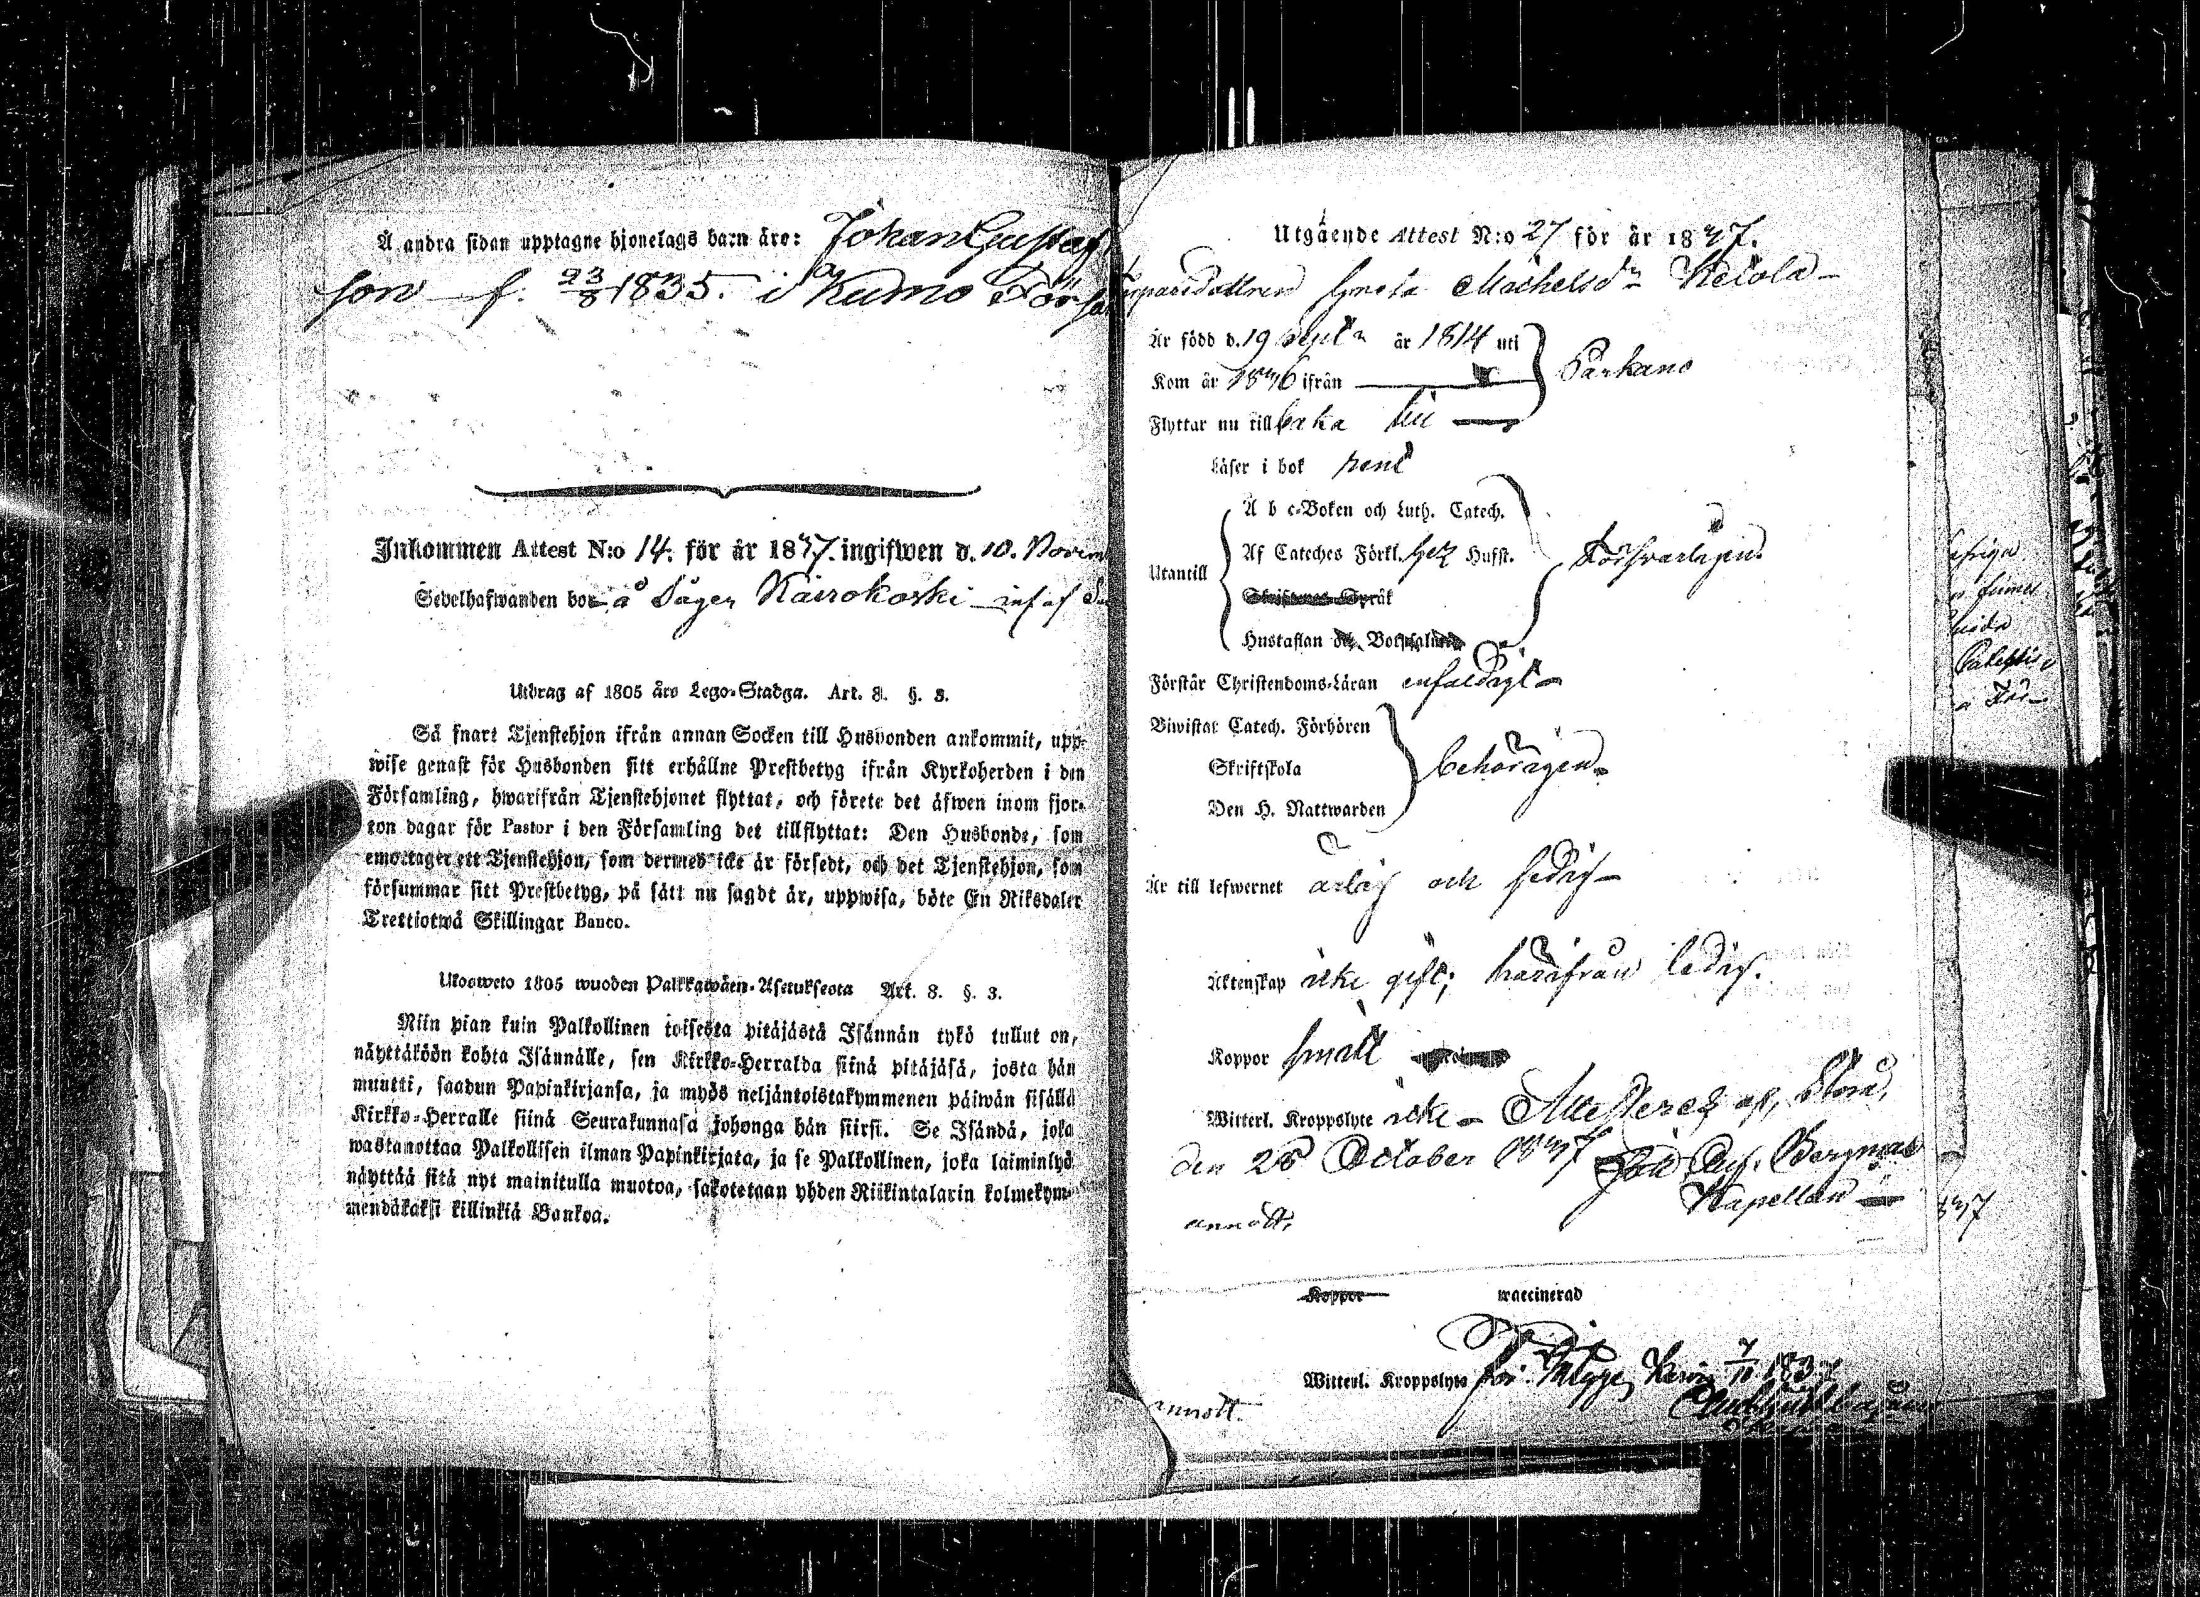 Å andra sidan upptagne hjonelags barn äro: Johan Gustafs
son f. 23/8 1835. i Kumo Förs
Inkommen Attest N:o 14. för år 1837. ingifwen d. 10. Novem
Sedelhafwanden bor å Säger Kairokoski
Utdrag af 1805 års Lego-Stadga. Art. 8. §. 3.
Så snart Tjenstehjon ifrån annan Socken till Husbonden ankommit, upp-
wise genast för Husbonden sitt erhållne Prestbetyg ifrån Kyrkoherden i den
Församling, hwarifrån Tjenstehjonet flyttat, och förete det äfwen inom fjor-
ton dagar för Pastor i den Församling det tillflyttat: Den Husbonde, som
emottager ett Tjenstehjon, som dermed icke är försedt, och det Tjenstehjon, som
försummar sitt Prestbetyg, på sätt nu sagdt är, uppwisa, böte En Riksdaler
Trettiotwå Skillingar Banco.
Ulosweto 1805 wuoden Palkkawäen-Asetuksesta Art. 8. §. 3.
Niin pian kuin Palkollinen toisesta pitäjästä Isännän tykö tullut on,
näyttäköön kohta Isännälle, sen Kirkko-Herralda siinä pitäjäsä, josta hän
muutti, saadun Papinkirjansa, ja myös neljäntoistakymmenen päiwän sisällä
Kirkko-Herralle siinä Seurakunnasa johonga hän siirsi. Se Isändä, joka
wastanottaa Palkollisen ilman Papinkirjata, ja se Palkollinen, joka laiminlyö
näyttää sitä nyt mainitulla muotoa, sakotetaan yhden Riikintalarin kolmekym-
mendäkaksi killinkiä Bankoa.
Utgående Attest N:o 27 för år 1837.
Greta Michelsdr Ketola
Är född d. 19 Septr år 1814 uti
Kom år 1836 ifrån
Parkano
Flyttar nu tillbaka till
Läser i bok rent
Utantill
A b c-Boken och Luth. Catech.
Af Cateches Förkl. Hufst.
Språk
Hustaflan
Försvarligen
Förstår Christendoms-Läran enfaldigt
Biwistat Catech. Förhören
Skriftskola
Den H. Nattwarden
behörigen
Är till lefwernet ärlig och sedig
Äktenskap icke gift; härifrån ledig.
Koppor haft
Witterl. Kroppslyte icke Attesterar
den 28 October 1837 Bergman
Kapellan
annott.
Koppor waccinerad
Witterl. Kroppslyte
annott.